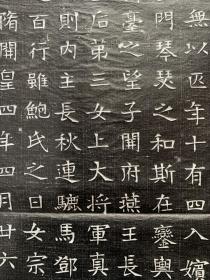 無以匹年十有四入嬪
門琴瑟之和斯在鑾
臺之望子開府燕王長
后第三女上大將軍真
則內主長秋連驪馬鄧
百行雖鮑氏之曰女宗
隋開皇四年四月廿六